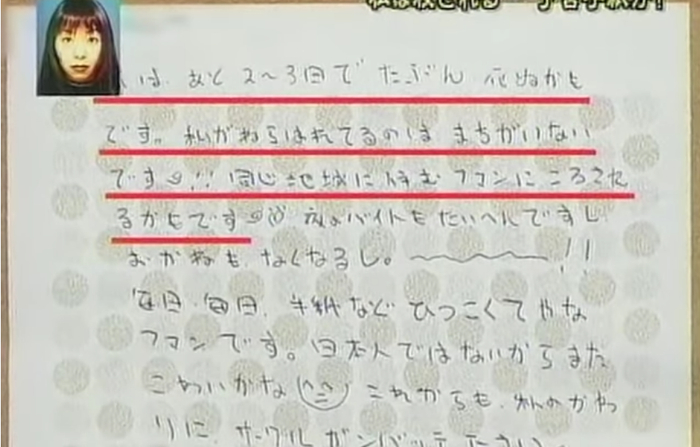 私は殺される… 予告手紙が!
は、あと 2〜3日で たぶん 死ぬかも
です。私がねらはれてるのは まちがいない
です!! 同じ地域に住む ファンに ころされ
るかもです バイトもたいへんですし
おかねも、なくなるし。!!
毎日、毎日、手紙など ひつこくてやな
ファンです。日本人ではないからまた
こわいかな これからも、私のかわ
りに、サークル ガンバッテ下さい。